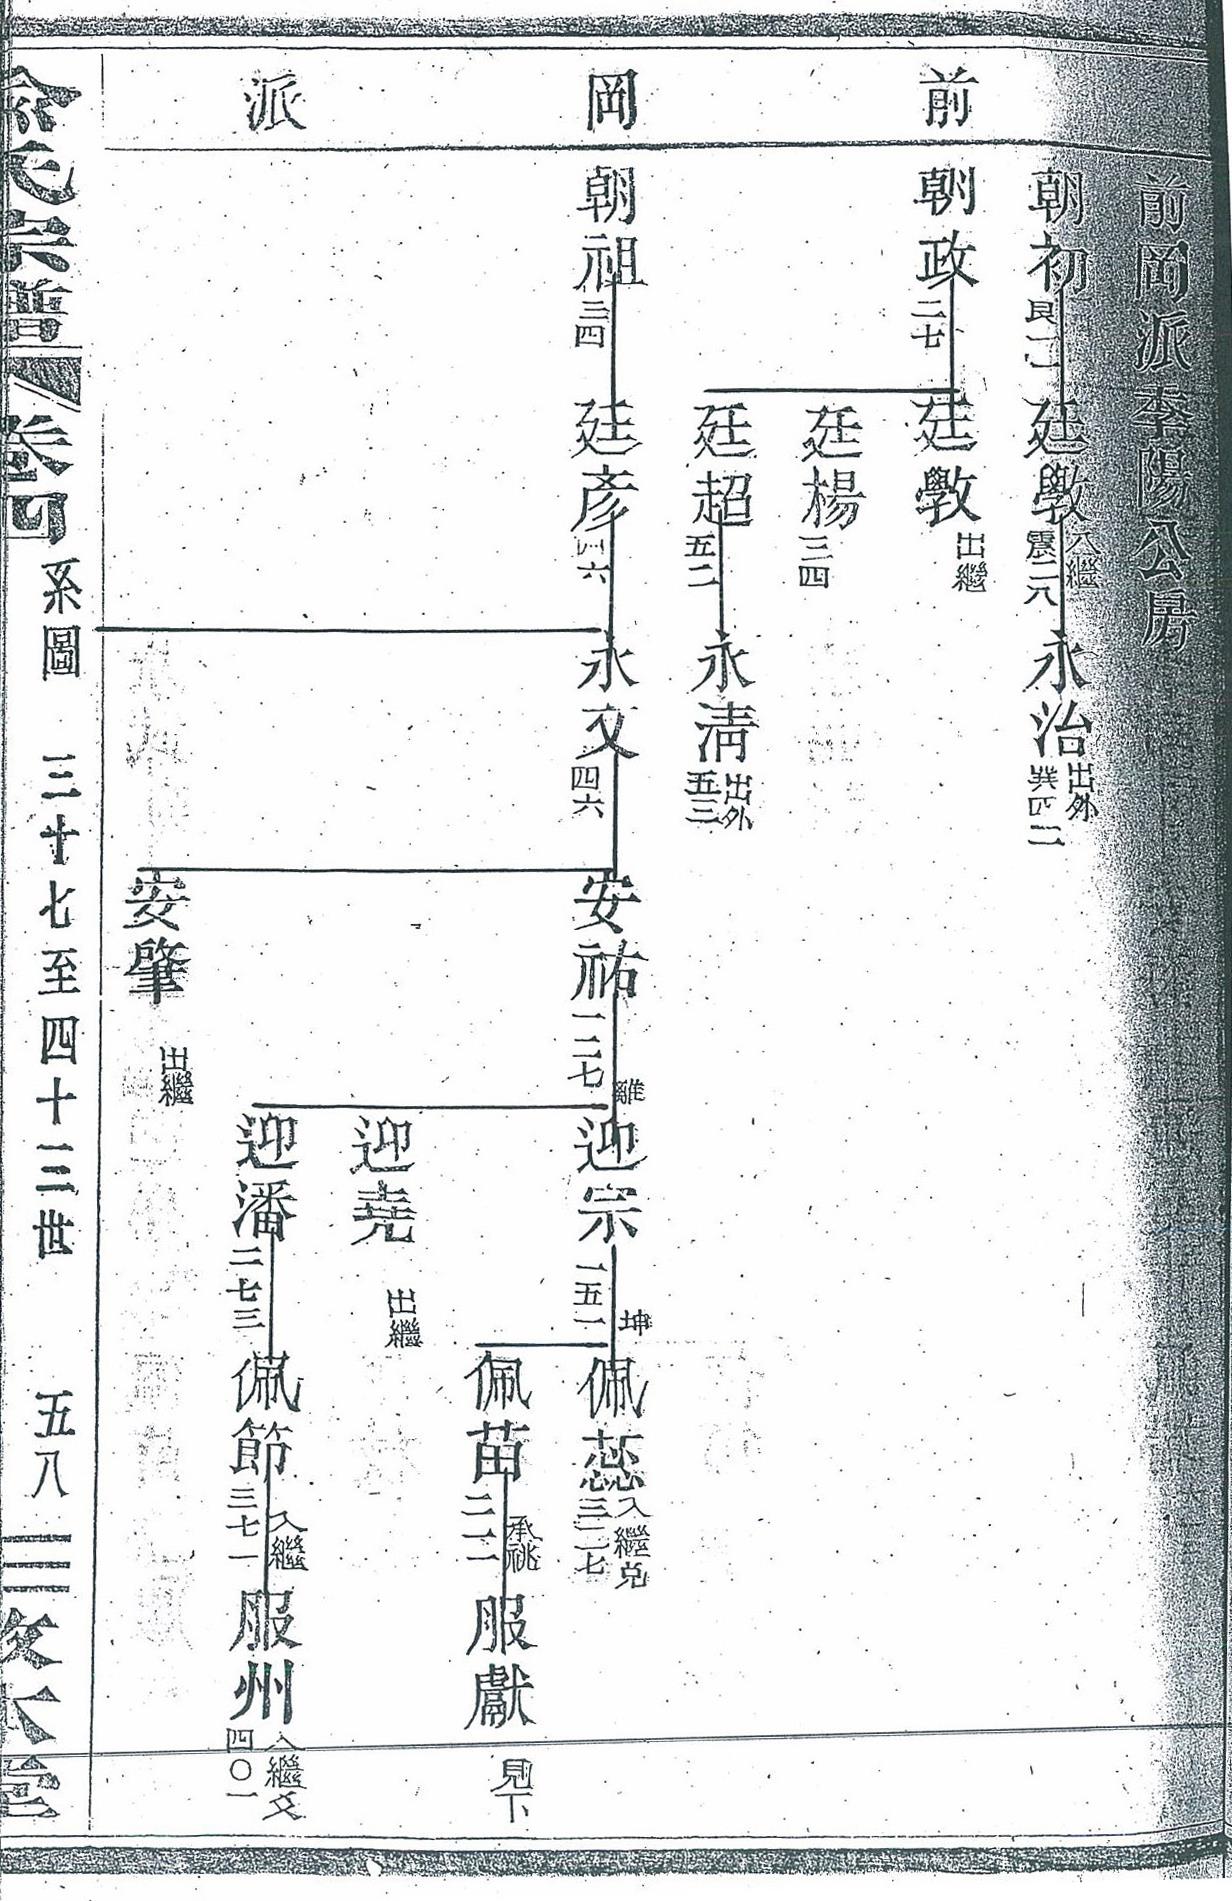 前岡派
前岡派季陽公房
朝初
廷斆 入繼 震二八
永治 出外 巽四二
朝政 二七
廷斆 出繼
廷楊 三四
廷超 五二
永淸 出外 五三
朝祖 三四
廷彥
永文 四六
安祐 一二七 離
迎宗 一五一 坤
佩蕊 入繼兌
佩苗 承祧
服獻 見下
迎堯 出繼
迎潘 二七三
佩節 入繼 三七一
服州 入繼文 四〇一
安肇 出繼
氏宗譜 卷四 系圖 三十七至四十三世 五八